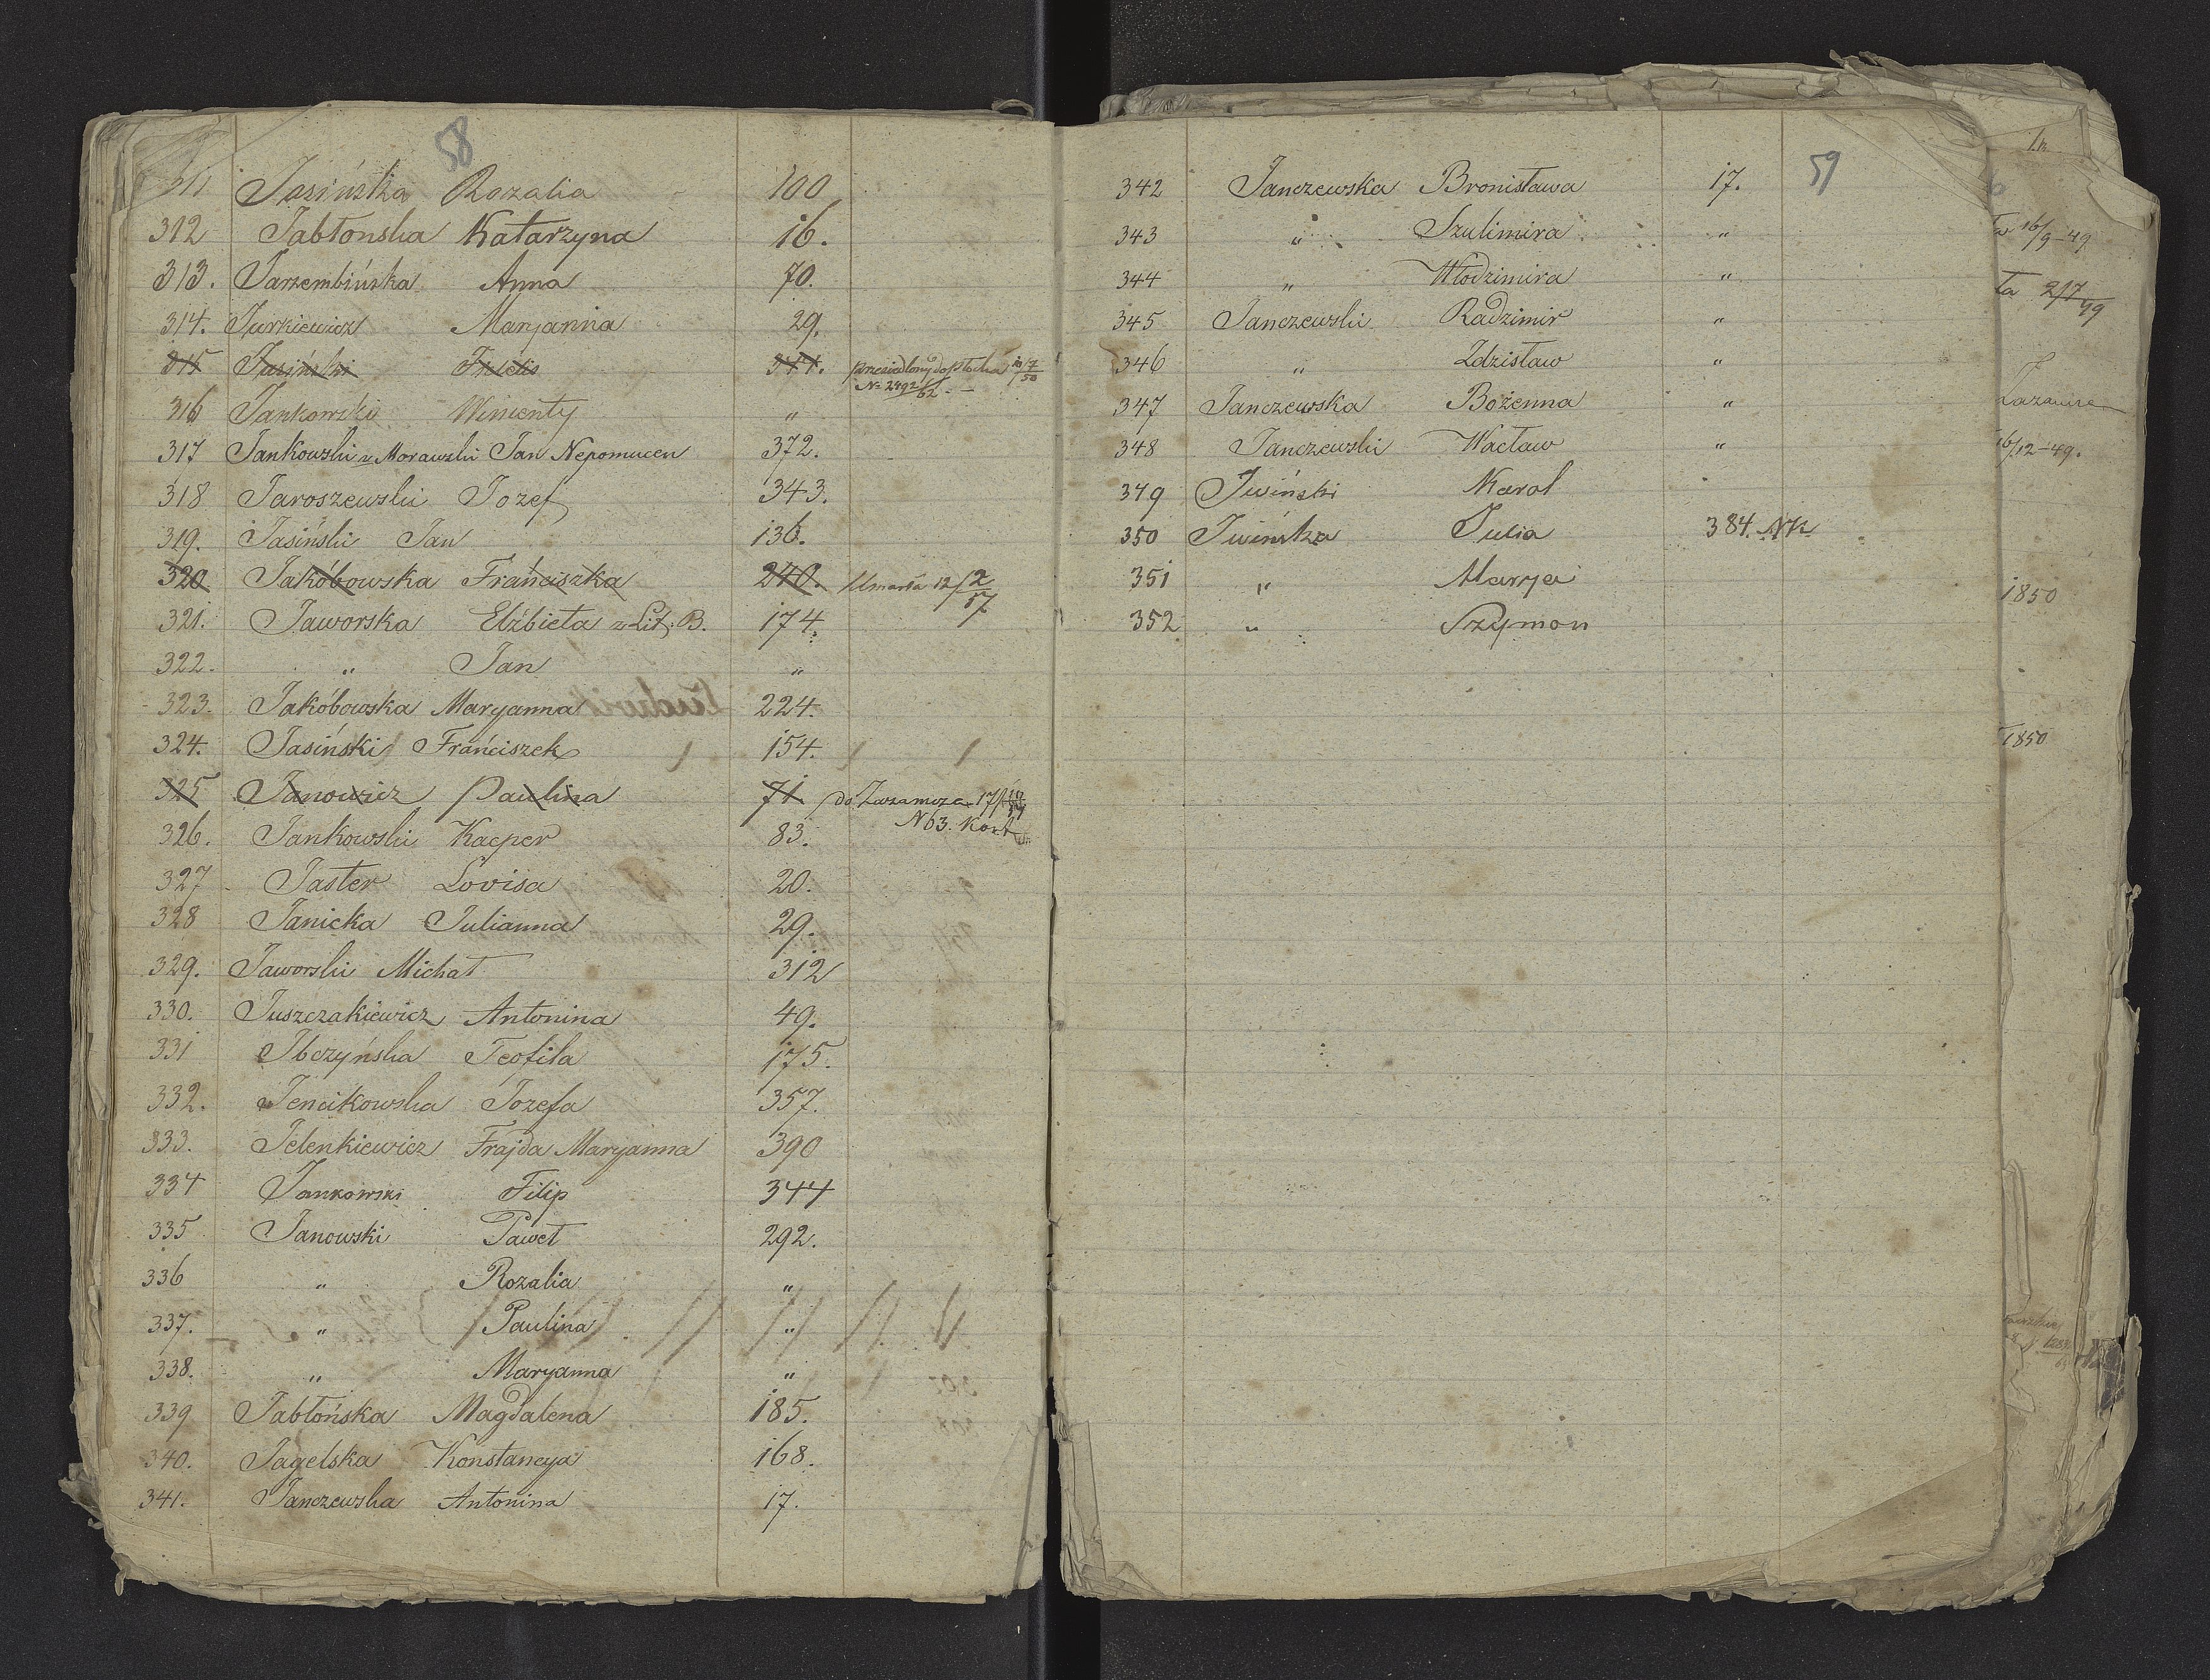 58
311 Jasińska Rozalia 100
312 Jabłonska Katarzyna 16.
313. Jarzembińska Anna 70.
314. Jurkiewicz Maryanna 29.
315 Jasiński 344. przesiedlony do Płocka 10/7 50
№ 2492/62. —
316 Jankowski Wincenty "
317 Jankowski v. Morawski Jan Nepomucen 372.
318 Jaroszewski Jozef 343.
319. Jasiński Jan 136.
320 Jakóbowska Frańciszka 240. Umarła 12/2 57
321. Jaworska Elżbieta z Lit. B. 174.
322. " Jan "
323. Jakóbowska Maryanna 224.
324. Jasiński Frańciszek 154.
325 Janowicz Paulina 71. do 17/
N 63. Kont
326. Jankowski Kacper 83.
327 Jaster Lovisa 20.
328 Janicka Julianna 29.
329. Jaworski Michał 312
330. Juszczakiewicz Antonina 49.
331 Ibczyńska Teofila 175.
332. Jencikowska Józefa 357.
333. Jelenkiewicz Frajda Maryanna 390
334 Jankowski Filip 344
335 Janowski Paweł 292.
336 " Rozalia "
337. " Paulina "
338. " Maryanna "
339 Jabłońska Magdalena 185.
340. Jagelska Konstancya 168.
341. Janczewska Antonina 17.
59
342 Janczewska Bronisława 17.
343 " Szulimira "
344 " Włodzimira "
345 Janczewski Radzimir "
346 " Zdzisław "
347 Janczewska Bożenna "
348 Janczewski Wacław "
349 Iwiński Karol
350 Iwińska Julia 384.
351 " Marya
352 " Szymon
16/9-49
ta 2/7 49
16/12-49.
1850
1850